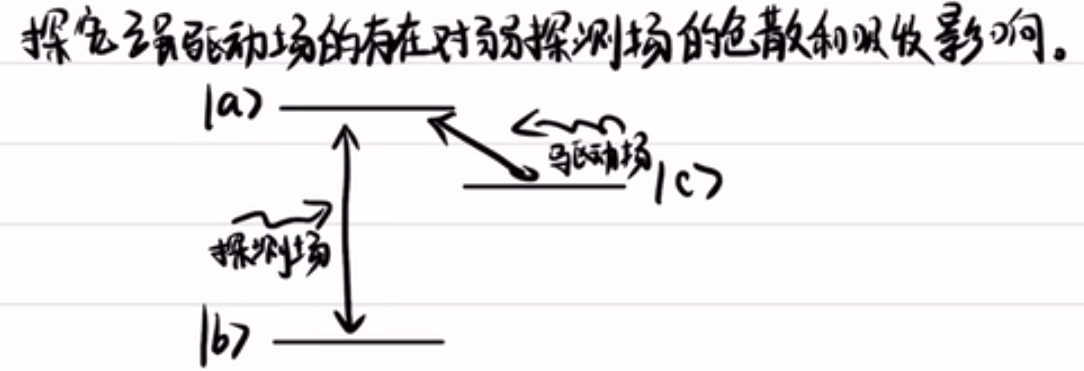 探究强驱动场的存在对弱探测场的色散和吸收影响。
|a>
驱动场
|c>
探测场
|b>